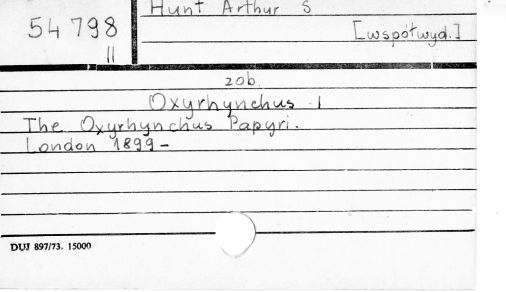 54 798
II
Hunt Arthur S
[współwyd.]
zob.
Oxyrhynchus 1
The Oxyrhynchus Papyri.
London 1899-
DUJ 897/73. 15000